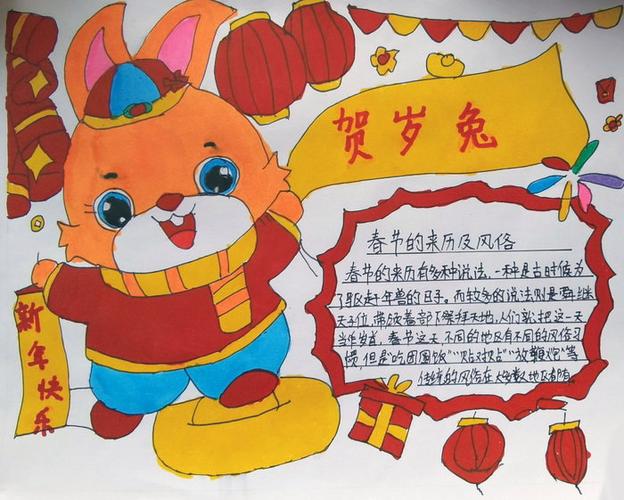 贺岁兔
春节的来历及风俗
春节的来历有多种说法,一种是古时候为
了驱赶年兽的日子。而较多的说法则是舜继
天子位,带领着部下祭拜天地,人们就把这一天
当作岁首。春节这天不同的地区有不同的风俗习
惯,但是“吃团圆饭”“贴对联”“放鞭炮”等
传统的风俗在大多数地区有的。
新年快乐